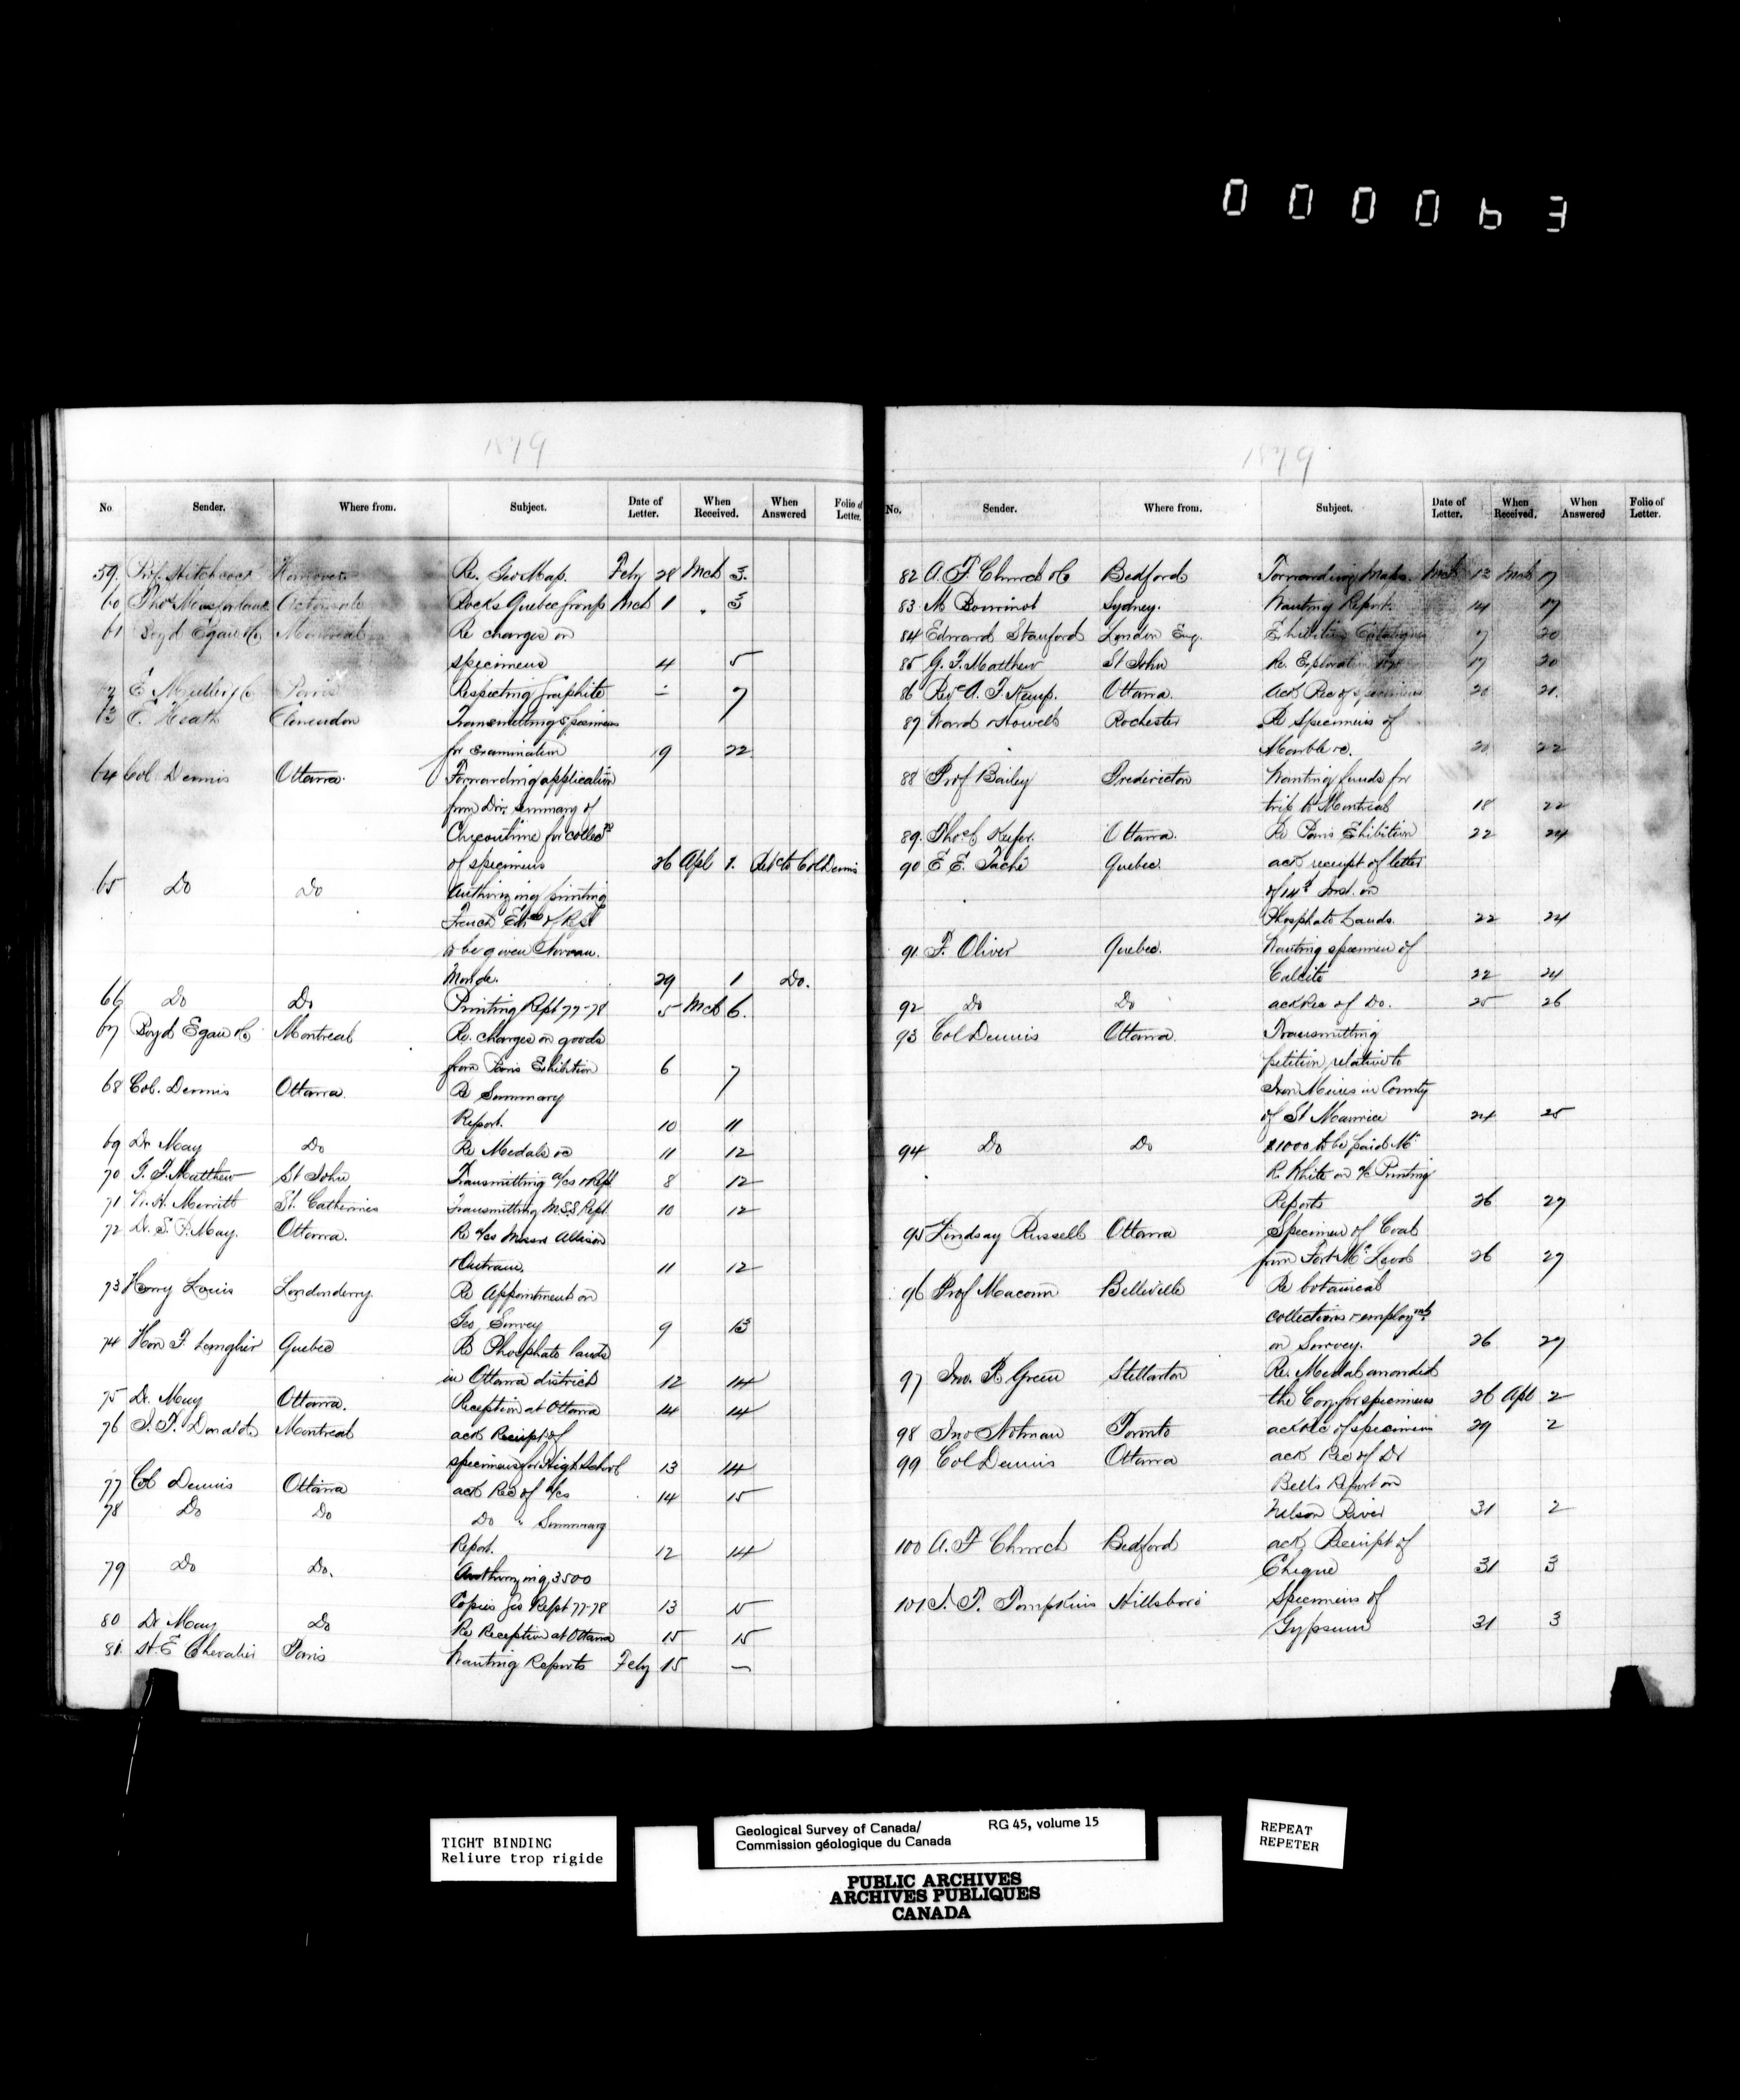 000063
1879
No. Sender. Where from. Subject. Date of Letter. When Received. When Answered Folio of Letter.
59. Prof. Hitchcock Hanover Re. Geo Map. Feby 28 Mch 3.
60 Thos Macfarlane Actonvale Rocks Quebec Group Mch 1 " 3
61 Boyd Egan & Co Montreal Re charges on
specimens 4 5
2 E Muller & Co Paris Respecting Graphite - 7
63 E. Heath Clarendon Transmitting specimens
for Examination 19 22
64 Col Dennis Ottawa. Forwarding application
from Dir. Seminary of
Chicoutimi for collecn
of specimens 26 Apl 1. Retd to Col Dennis
65 Do Do Authorizing printing
French Edn of Rept
to be given Nouveau
Monde. 29 1 Do.
66 Do Do Printing Rept 77-78 5 Mch 6.
67 Boyd Egan & Co Montreal Re. charges on goods
from Paris Exhibition 6 7
68 Col. Dennis Ottawa. Re Summary
Report. 10 11
69 Dr May Do Re Medals &c 11 12
70 G. F. Matthew St John Transmitting a/cs & Rept 8 12
71 W. H. Merritt St. Catherines Transmitting M.S.S. Rept. 10 12
72 Dr. S. P. May. Ottawa. Re a/cs Messrs Allison
& Outram. 11 12
73 Henry Louis Londonderry Re Appointment on
Geo, Survey 9 13
74 Hon F. Langelier Quebec Re Phosphate lands
in Ottawa district 12 14
75 Dr. May Ottawa. Reception at Ottawa 14 14
76 J. T. Donald Montreal ack Receipt of
specimens for High School 13 14
77 Col Dennis Ottawa ack Rec of a/cs 14 15
78 Do Do Do " Summary
Report. 12 14
79 Do Do. Authorizing 3500
Copies Geo Rept 77-78 13 15
80 Dr May Do Re Reception at Ottawa 15 15
81. H. E Chevalier Paris Wanting Reports Feby 15 —
1879
No. Sender. Where from. Subject. Date of Letter. When Received. When Answered Folio of Letter.
82 A. F. Church & Co Bedford Forwarding Maps. Mch 12 Mch 17
83 M Sydney. Wanting Report 14 17
84 Edward Stanford London Eng. Exhibition Catalogue 7 20
85 G. F. Matthew St John Re. Exploration 17 20
86 Revd A. F Kemp. Ottawa. Ack Rec of specimens 20 21.
87 Ward & Howell Rochester Re Specimens of
Marble &c. 20 22
88 Prof Bailey Fredericton Wanting funds for
trip to Montreal 18 22
89. Thos C Keefer. Ottawa. Re Paris Exhibition 22 24
90 E E. Taché Quebec. ack receipt of letter
of 14th Inst. on
Phosphate Lands. 22 24
91 F. Oliver Quebec. Wanting specimen of
Calcite 22 24
92 Do Do ack Rec of Do. 25 26
93 Col Dennis Ottawa. Transmitting
petition, relative to
Iron Mines in County
of St Maurice 24 25
94 Do Do $1000 to be paid Mr
R. White on a/c Printing
Reports 26 27
95 Lindsay Russell Ottawa Specimen of Coal
from Fort McLeod 26 27
96 Prof Macoun Belleville Re botanical
collections & employmt
on Survey. 26 27
97 Jno. R Green Stellarton Re. Medal awarded
the Coy. for specimens 26 Apl 2
98 Jno Notman Toronto ack Rec of specimens 29 2
99 Col Dennis Ottawa ack Rec of Dr
Bells Report on
Nelson River 31 2
100 A. F Church Bedford ack, Receipt of
Cheque 31 3
101 J. T. Tompkins Hillsboro Specimens of
Gypsum 31 3
TIGHT BINDING
Reliure trop rigide
Geological Survey of Canada/ RG 45, volume 15
Commission géologique du Canada
PUBLIC ARCHIVES
ARCHIVES PUBLIQUES
CANADA
REPEAT
REPETER